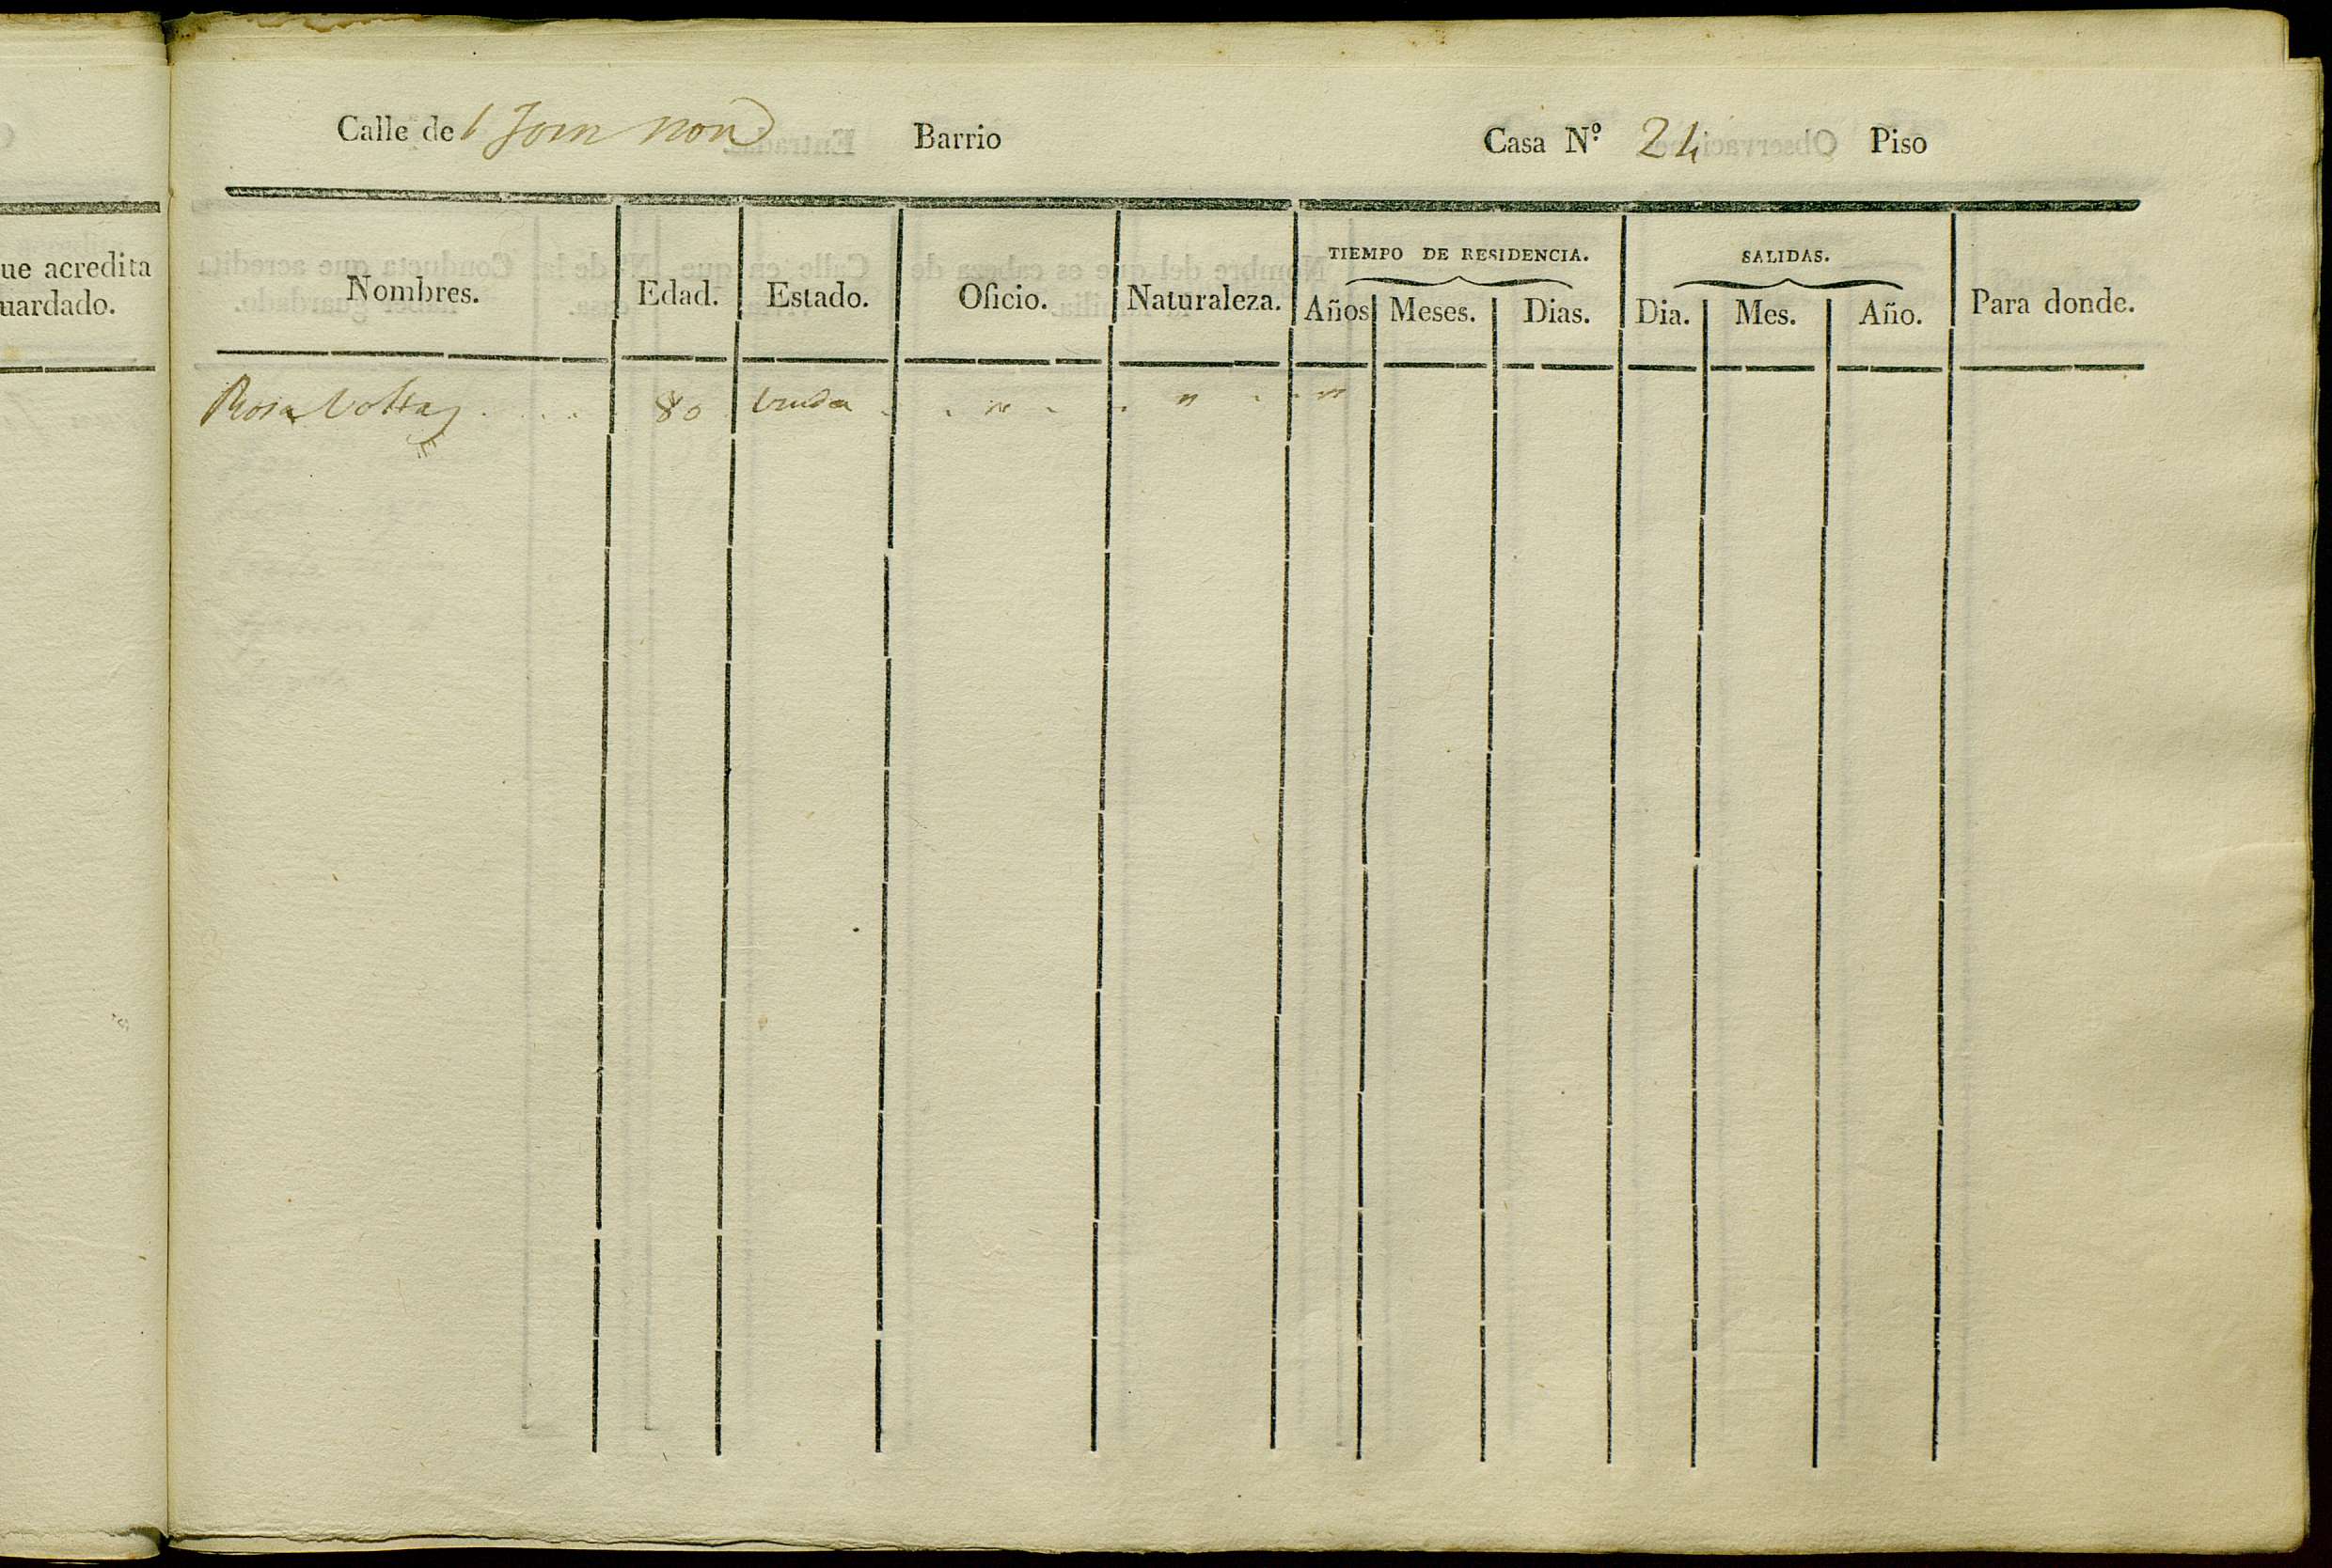 Calle de l Forn nou Barrio Casa Nº 24 Piso
ue acredita
uardado.
TIEMPO DE RESIDENCIA. SALIDAS.
Nombres. Edad. Estado. Oficio. Naturaleza. Años Meses. Dias. Dia. Mes. Año. Para donde.
Rosa 80 viuda " " "